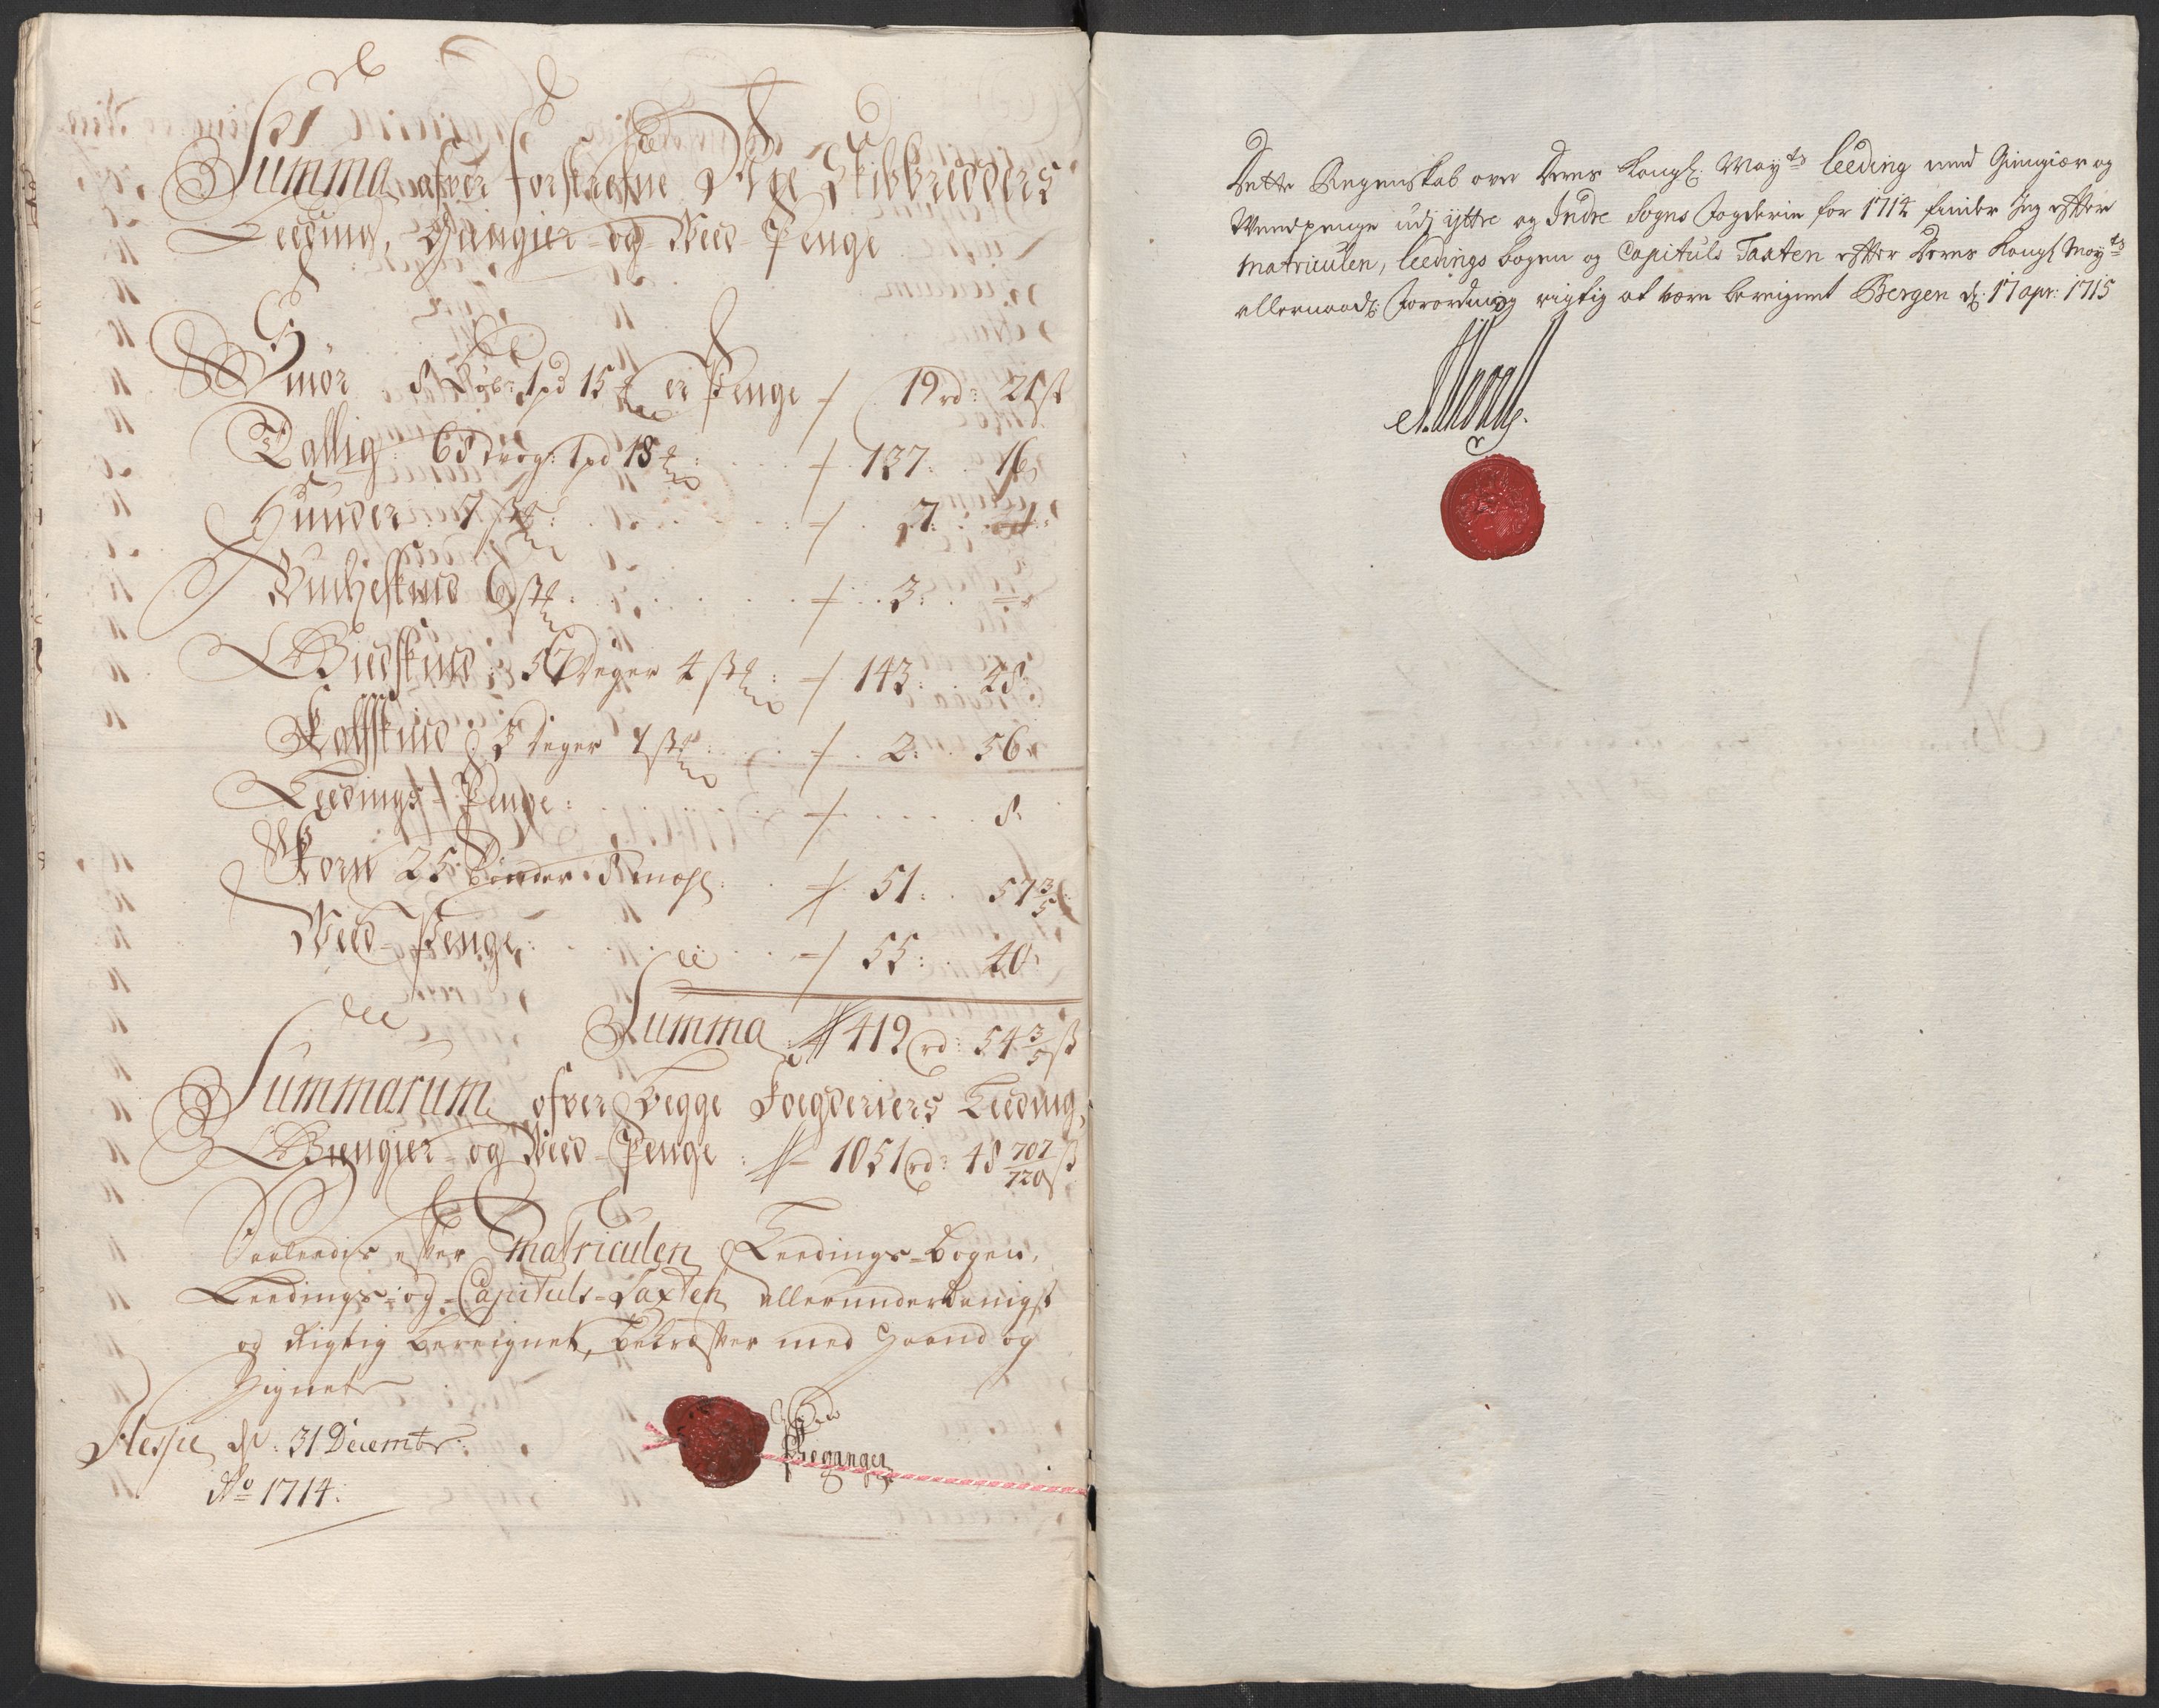 Summa ofver forskrefne Skibbredders
Leeding, Giengier og Wed-Penge
Smør 8 Løb: 1pd 15 er Penge 19rd: 21ß
Tallig: 68 1pd 18 137: 16
Hunder: 7 7:
Buckeskind 6 3:
Giedskind: 57 deger 4 143: 48
Kalfskind: 5 deger 7 2: 56
Leedings-Penge: 8
Korn 25 51: 57 3/5
Wed-Penge: 55: 40
Summa 419rd: 54 3/5 ß
Summarum ofver Begge Fogderiers Leeding,
Giengier og Wed-Penge: 1051rd: 48 707/720 ß
Saaledis efter Matriculen Leedings-Bogen,
Leedings- og Capituls-Taxten allerunderdanigst
og Rigtig bereignet, bekrefter med Haand og
Signet
d: 31 Decembr:
Ao 1714.
Dette Regenskab over Deres Kongl: Mayts Leeding med Giengiær og
Weedpenge udj yttre og Indre Sogns Fogderie for 1714 finder Jeg efter
Matriculen, Leedings bogen og Capituls Taxten efter Deres Kongl Mayts
allernaad: Forordning rigtig at være bereignet Bergen d: 17 apr: 1715